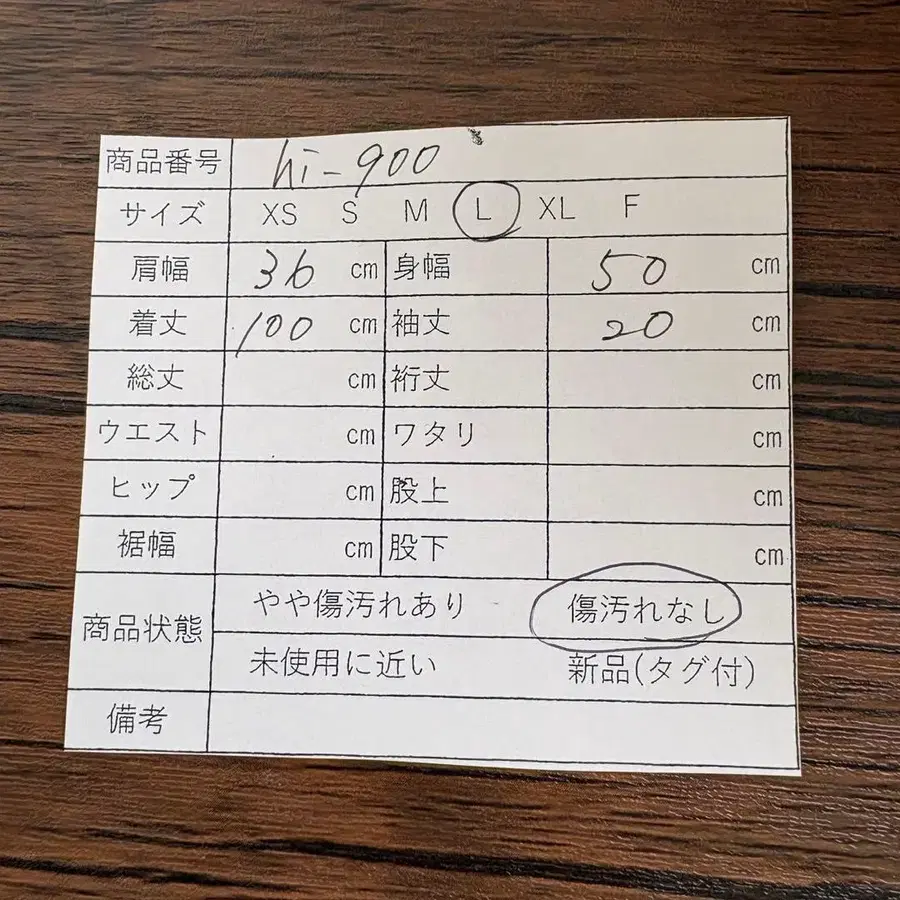 商品番号 hi-900
サイズ XS S M L XL F
肩幅 36 cm 身幅 50 cm
着丈 100 cm 袖丈 20 cm
総丈 cm 裄丈 cm
ウエスト cm ワタリ cm
ヒップ cm 股上 cm
裾幅 cm 股下 cm
商品状態 やや傷汚れあり 傷汚れなし
未使用に近い 新品(タグ付)
備考